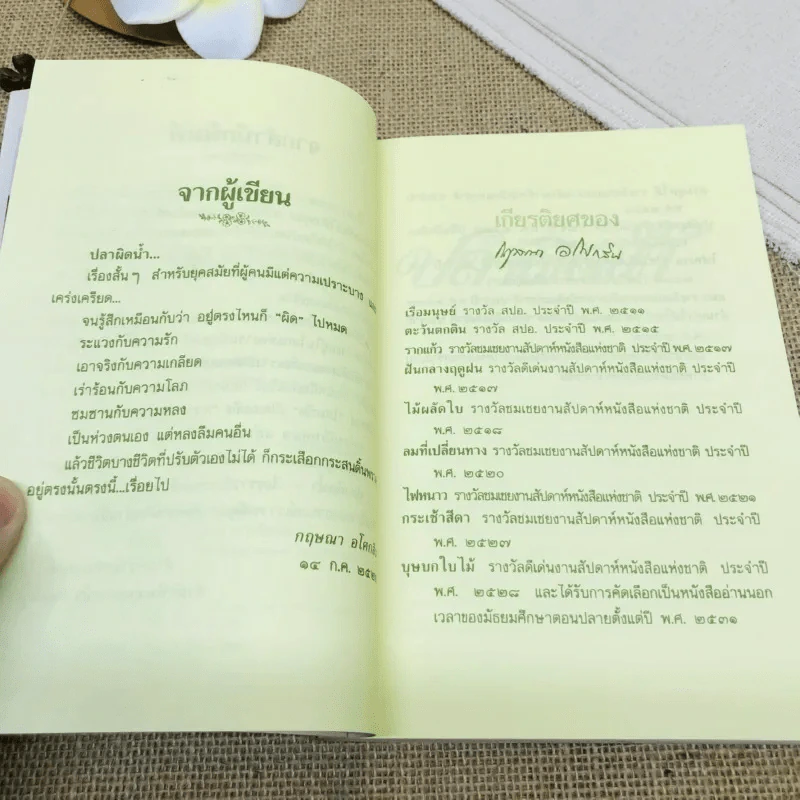 จากผู้เขียน
ปลาผิดน้ำ...
เรื่องสั้นๆ สำหรับยุคสมัยที่ผู้คนมีแต่ความเปราะบาง
เคร่งเครียด...
จนรู้สึกเหมือนกับว่า อยู่ตรงไหนก็ "ผิด" ไปหมด
ระแวงกับความรัก
เอาจริงกับความเกลียด
เร่าร้อนกับความโลภ
ซมซานกับความหลง
เป็นห่วงตนเอง แต่หลงลืมคนอื่น
แล้วชีวิตบางชีวิตที่ปรับตัวเองไม่ได้ ก็กระเสือกกระสนดิ้นพราด
อยู่ตรงนั้นตรงนี้...เรื่อยไป
กฤษณา
๑๔ ก.ค.
เกียรติยศของ
กฤษณา อโศกสิน
เรือมนุษย์ รางวัล สปอ. ประจำปี พ.ศ. ๒๕๑๑
ตะวันตกดิน รางวัล สปอ. ประจำปี พ.ศ. ๒๕๑๕
รากแก้ว รางวัลชมเชยงานสัปดาห์หนังสือแห่งชาติ ประจำปี พ.ศ. ๒๕๑๗
ฝันกลางฤดูฝน รางวัลดีเด่นงานสัปดาห์หนังสือแห่งชาติ ประจำปี
พ.ศ. ๒๕๑๗
ไม้ผลัดใบ รางวัลชมเชยงานสัปดาห์หนังสือแห่งชาติ ประจำปี
พ.ศ. ๒๕๑๘
ลมที่เปลี่ยนทาง รางวัลชมเชยงานสัปดาห์หนังสือแห่งชาติ ประจำปี
พ.ศ. ๒๕๒๐
ไฟหนาว รางวัลชมเชยงานสัปดาห์หนังสือแห่งชาติ ประจำปี พ.ศ. ๒๕๒๑
กระเช้าสีดา รางวัลชมเชยงานสัปดาห์หนังสือแห่งชาติ ประจำปี
พ.ศ. ๒๕๒๗
บุษบกใบไม้ รางวัลดีเด่นงานสัปดาห์หนังสือแห่งชาติ ประจำปี
พ.ศ. ๒๕๒๘ และได้รับการคัดเลือกเป็นหนังสืออ่านนอก
เวลาของมัธยมศึกษาตอนปลายตั้งแต่ปี พ.ศ. ๒๕๓๑